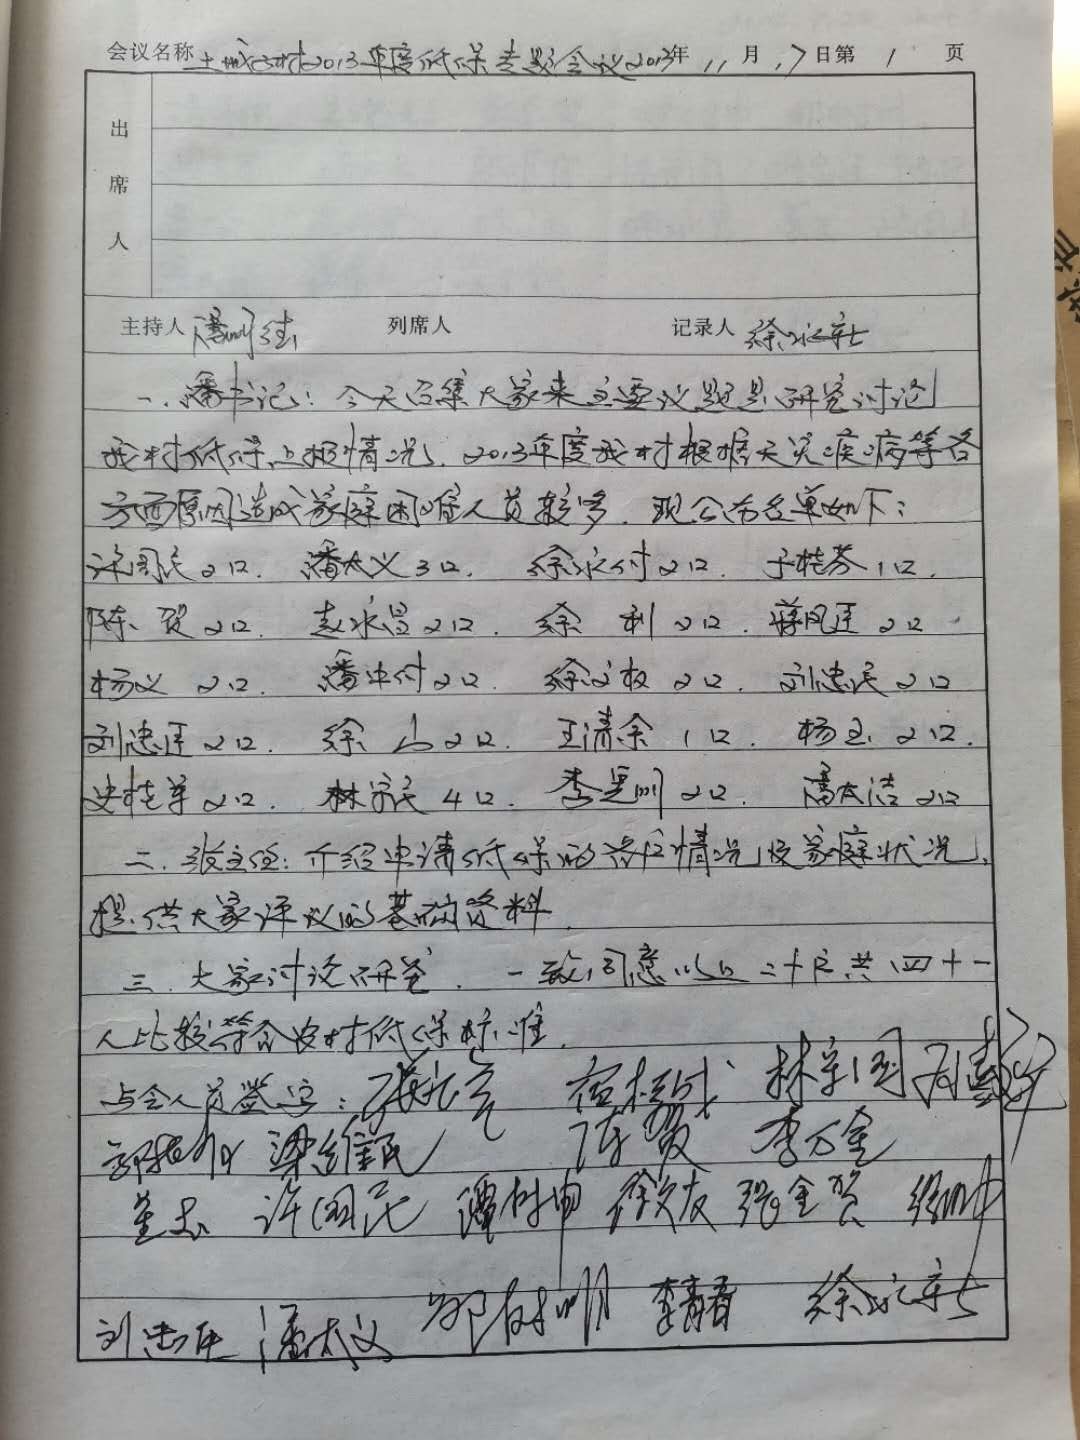 会议名称 土城子村2013年度低保专题会议 2013年 11月 17日第 1 页
出席人
主持人 列席人 记录人 徐永宏
一、潘书记：今天召集大家来主要议题是研究讨论
我村低保上报情况，2013年度我村根据天灾疾病等各
方面原因造成家庭困难人员较多，现公布名单如下：
许国民2口. 潘太义3口. 徐永付2口. 于桂芬1口.
陈贺2口. 赵永昌2口. 徐利2口. 蒋凤军2口
杨义2口. 潘忠付2口. 徐文权2口. 刘忠民2口
刘忠军2口. 徐山2口. 王清余1口. 杨玉2口.
史桂兰2口. 林宗民4口. 李 2口. 潘太洁2口
二、张主任：介绍申请低保的各户情况及家庭状况，
提供大家评议的基础资料.
三、大家讨论研究，一致同意以上二十户共四十一
人比较符合农村低保标准.
与会人员签字： 林宗国
梁维民 陈贺 李万金
董志 许国民 谭树坤 徐友 张金贺
刘忠军 潘太义 邹树明 李青春 徐永宏